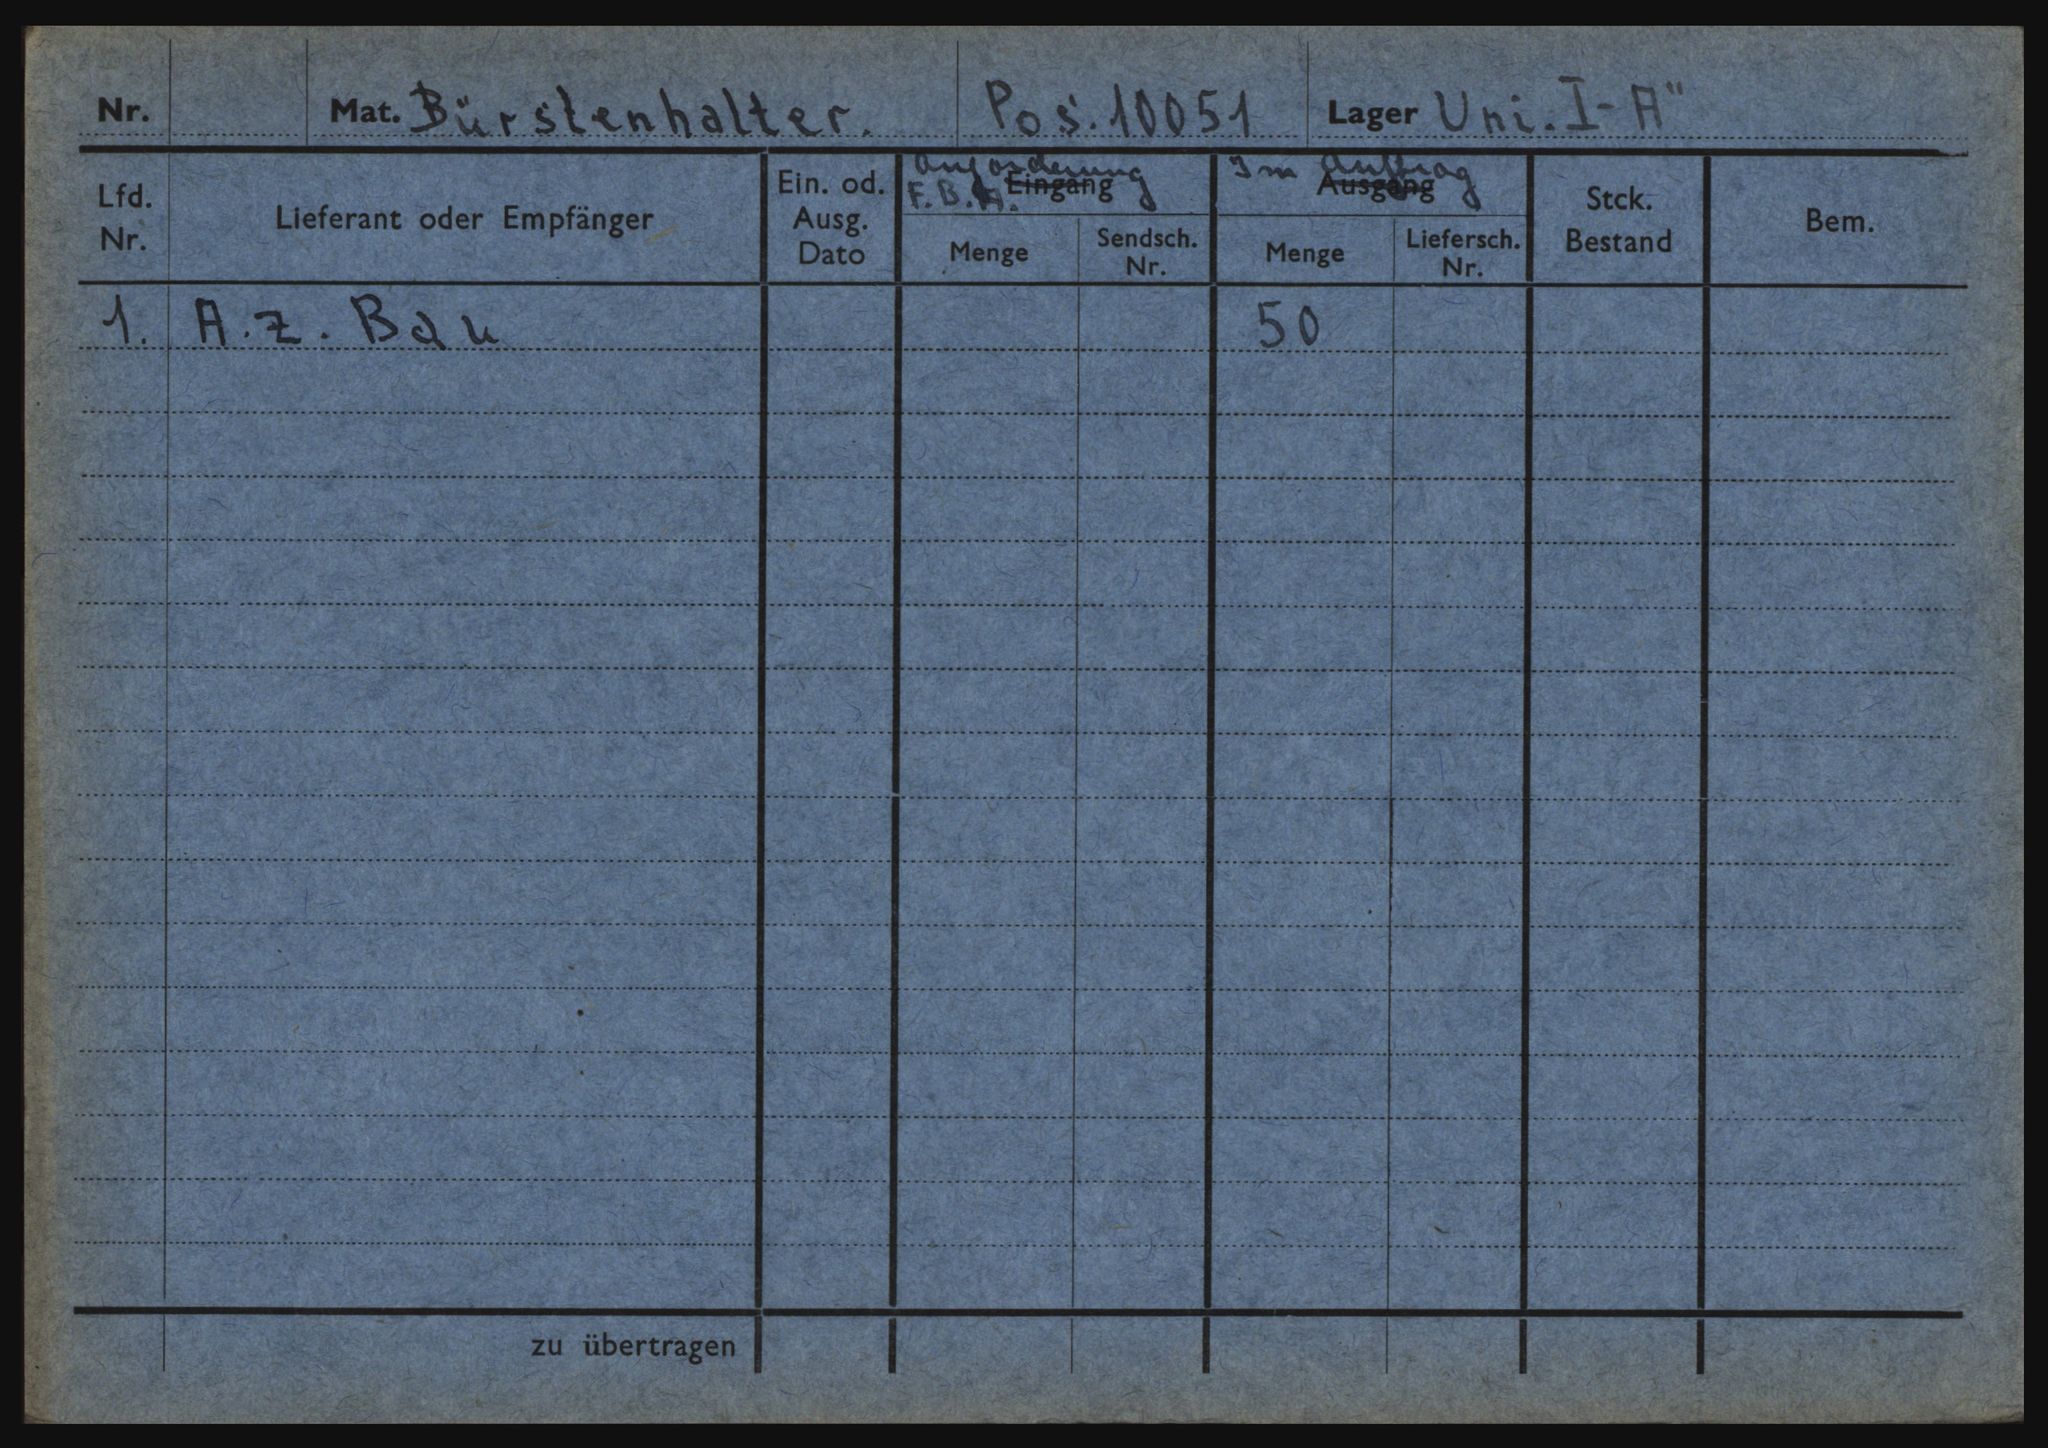 Nr. Mat. Bürstenhalter. Pos. 10051 Lager Uni. I-A"
Lfd. Nr. Lieferant oder Empfänger Ein. od. Ausg. Dato Anforderung F.B.A. Eingang Im Auftrag Ausgang Stck. Bestand Bem.
Menge Sendsch. Nr. Menge Liefersch. Nr.
1. A.z. Bau 50
zu übertragen